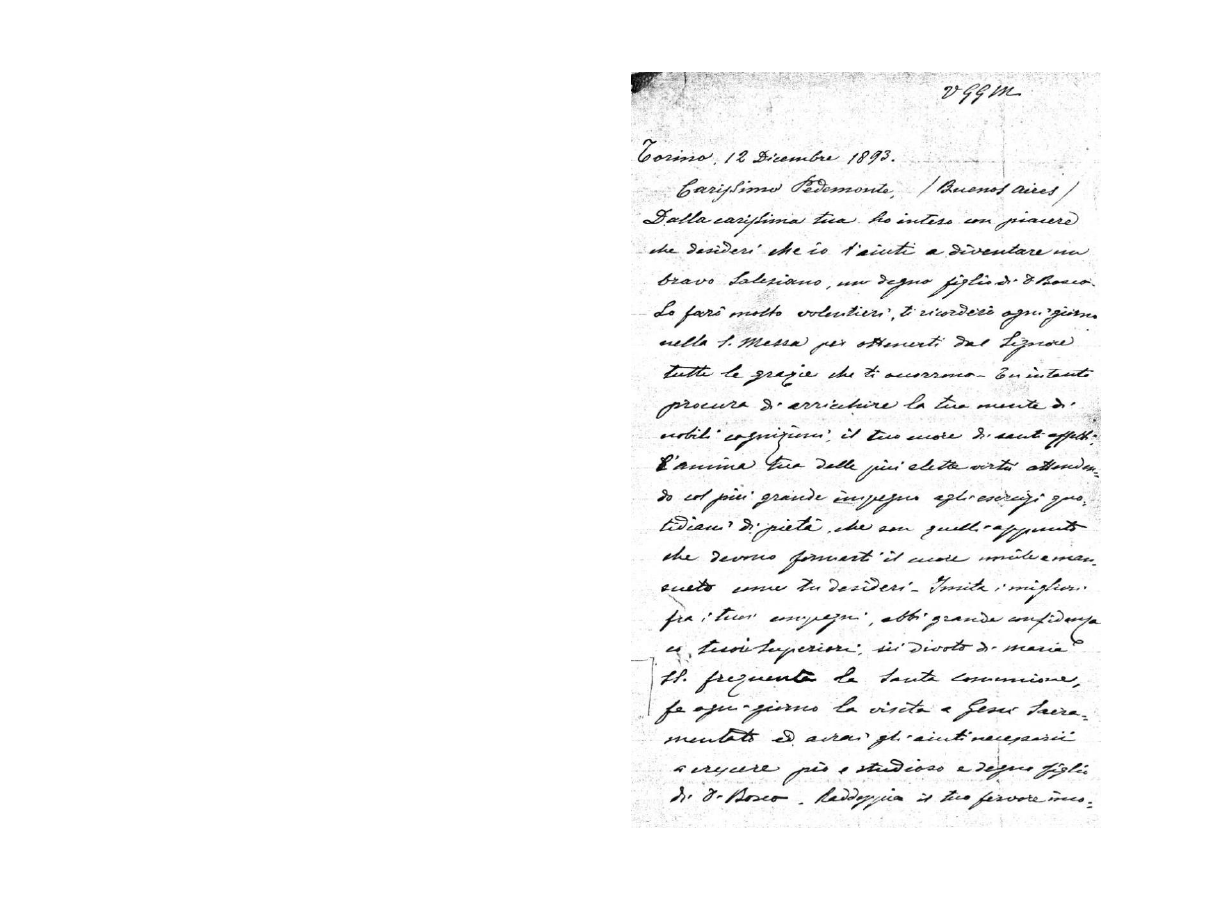 V G G M
Torino, 12 Dicembre 1893.
Carissimo Pedemonte, / Buenos Aires /
Dalla carissima tua ho inteso con piacere
che desideri che io t'aiuti a diventare un
bravo Salesiano, un degno figlio di D Bosco.
Lo farò molto volentieri, ti ricorderò ogni giorno
nella S. Messa per ottenerti dal Signore
tutte le grazie che ti occorrono - Tu intanto
procura di arricchire la tua mente di
nobili cognizioni, il tuo cuore di santi affetti,
l'anima tua delle più elette virtù attenden=
do col più grande impegno agli esercizi quo=
tidiani di pietà, che son quelli appunto
che devono formarti il cuore umile e man=
sueto come tu desideri - Imita i migliori
fra i tuoi compagni, abbi grande confidenza
co' tuoi Superiori, sii divoto di Maria
SS. frequenta la Santa comunione,
fa ogni giorno la visita a Gesù Sacra=
mentato ed avrai gli aiuti necessarii
a crescere pio e studioso e degno figlio
di D. Bosco. Raddoppia il tuo fervore in